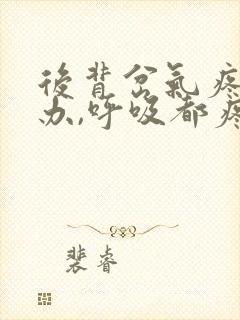 後背岔氣疼
办,呼吸都疼
裴睿